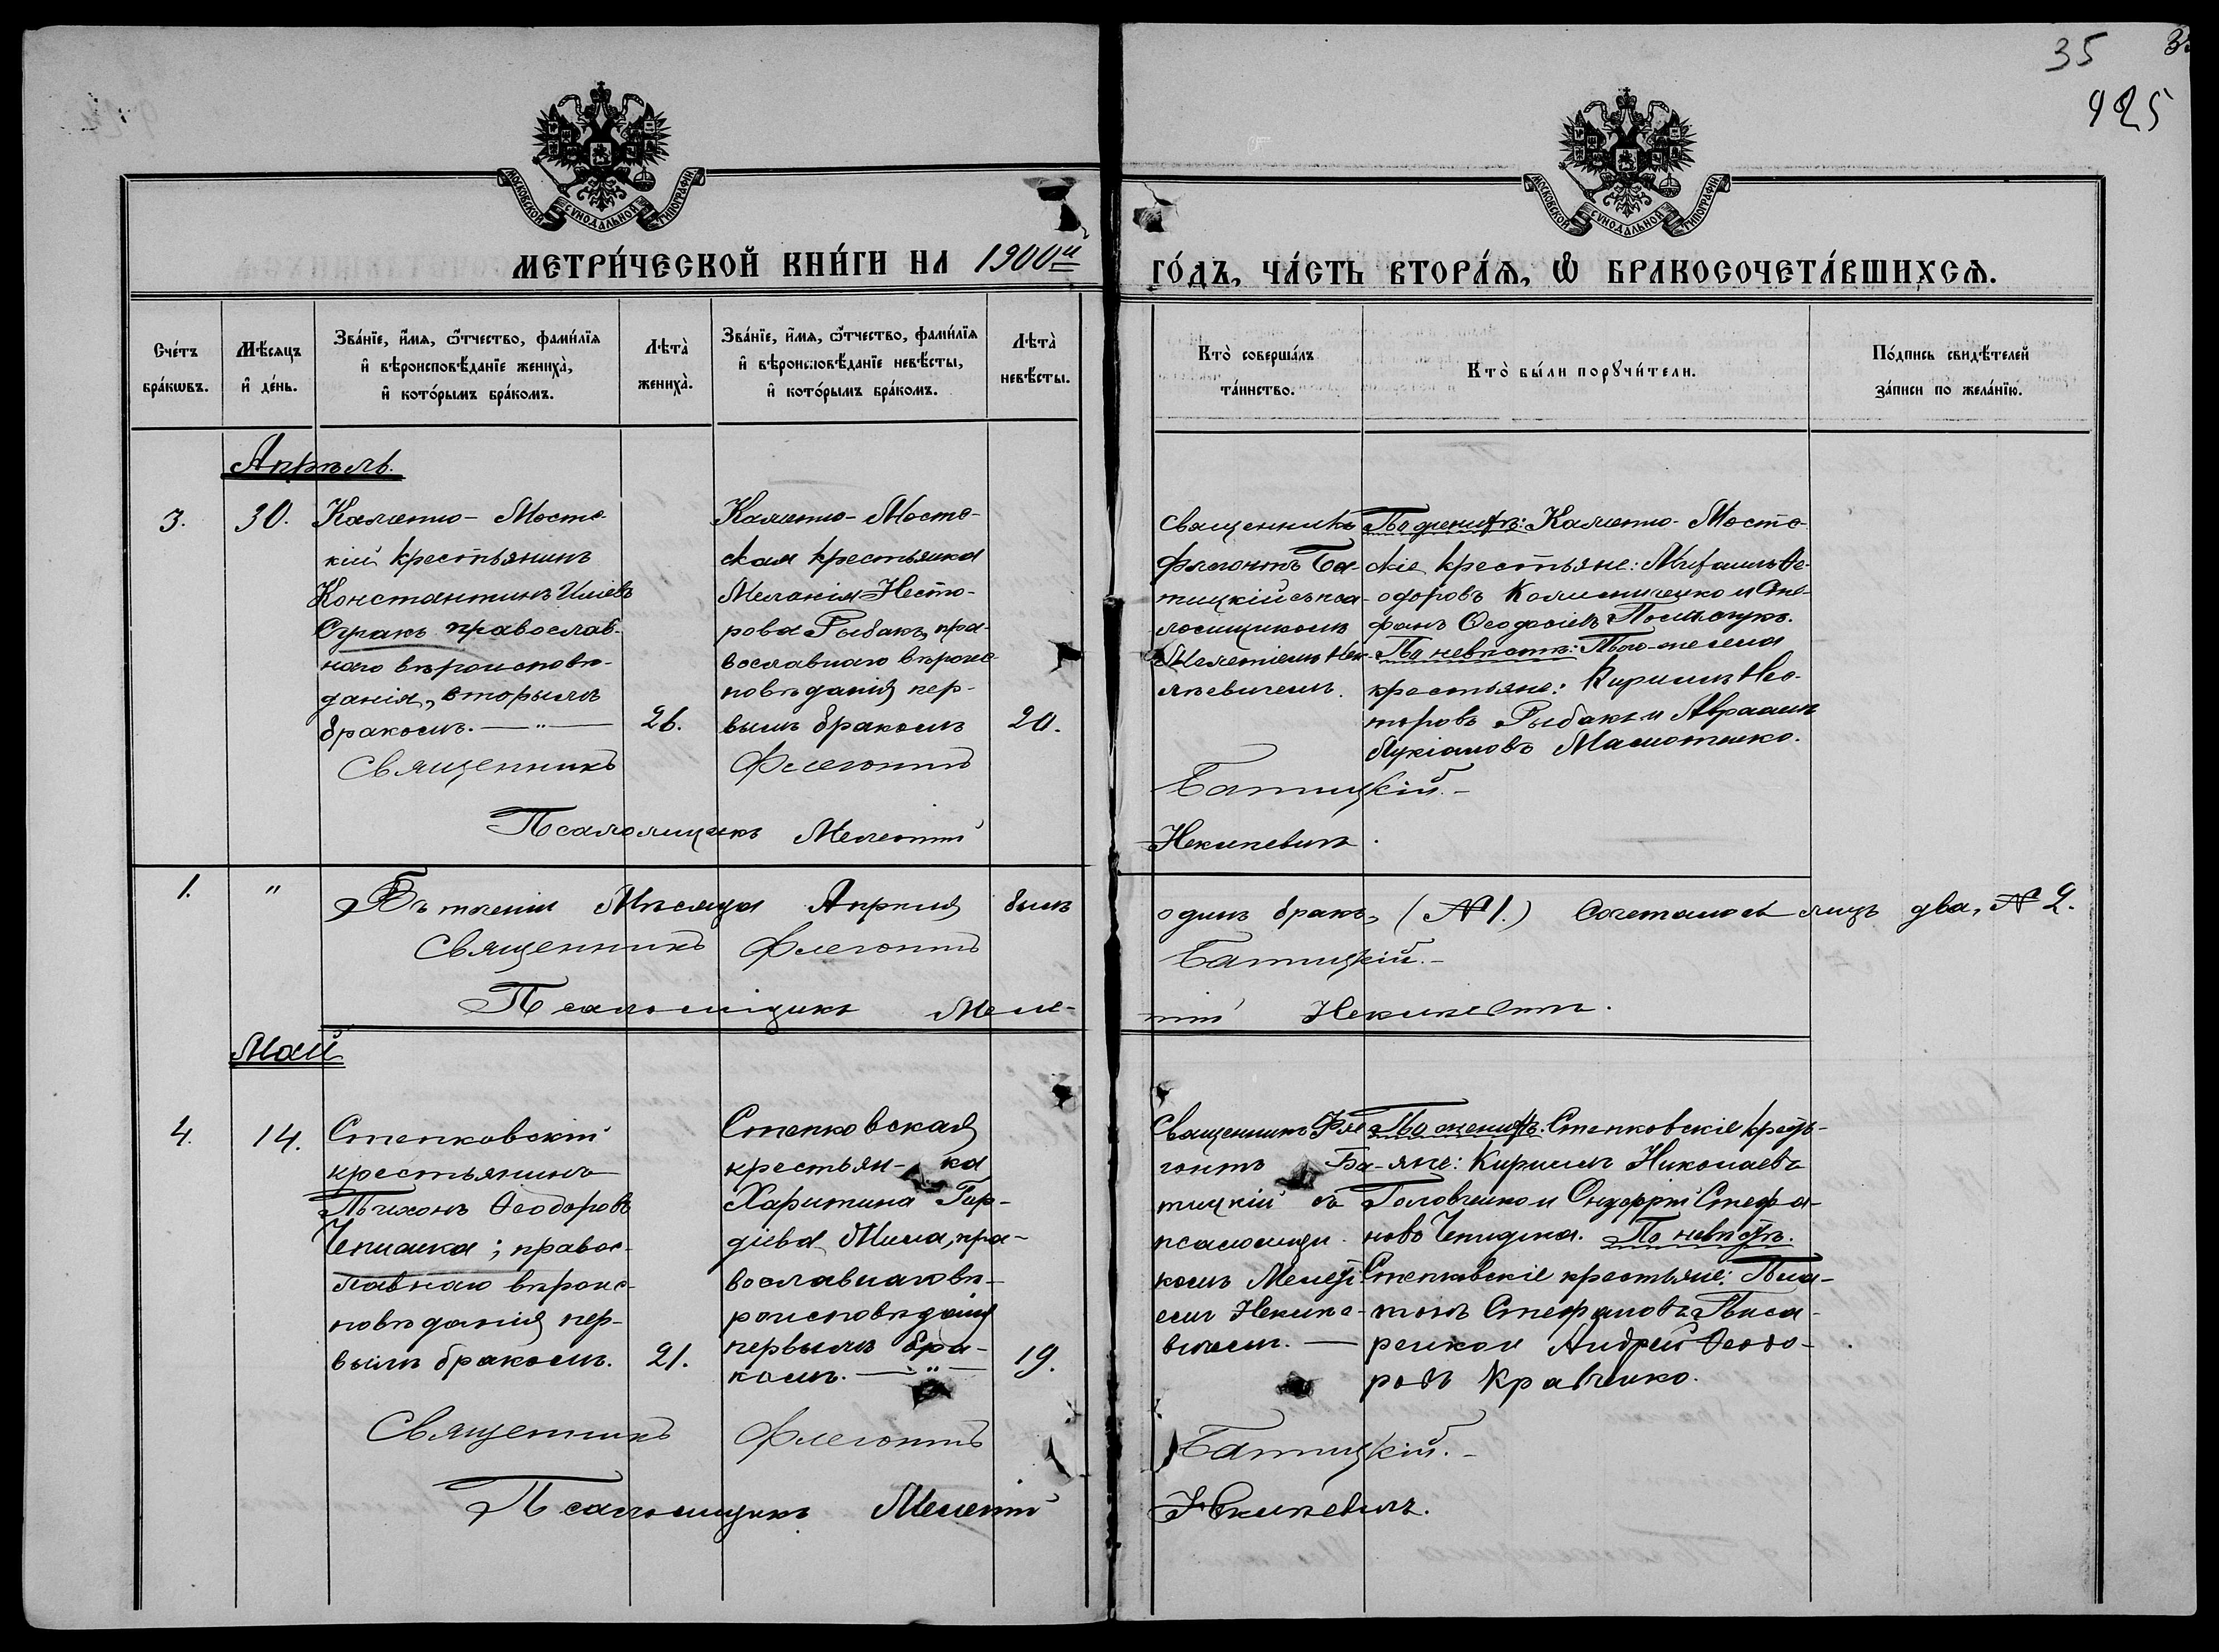 35
925
МОСКОВСКОЙ СѴНОДАЛЬНОЙ ТИПОГРАФІИ
МОСКОВСКОЙ СѴНОДАЛЬНОЙ ТИПОГРАФІИ
МЕТРИ́ЧЕСКОЙ КНИ́ГИ НА 1900й
ГО́ДЪ, ЧА́СТЬ ВТОРА́Ѧ, Ѿ БРАКОСОЧЕТА́ВШИХСѦ.
Счéтъ бра́кѡвъ.
Мѣ́сѧцъ и҆ де́нь.
Зва́нїе, и҆́мѧ, ѻ҆́тчество, фами́лїѧ и҆ вѣроисповѣ́данїе жениха̀, и҆ кото́рымъ бра́комъ.
Лѣта̀ жениха̀.
Зва́нїе, и҆́мѧ, ѻ҆́тчество, фами́лїѧ и҆ вѣроисповѣ́данїе невѣ́сты, и҆ кото́рымъ бра́комъ.
Лѣта̀ невѣ́сты.
Кто̀ соверша́лъ та́инство.
Кто̀ бы́ли порꙋчи́тели.
По́дпись свидѣ́телей за́писи по жела́нїю.
Апрѣль.
3.
30.
Каменно-Мостс-
кій крестьянинъ
Константинъ Иліевъ
православ-
наго вѣроисповѣ-
данія, вторымъ
бракомъ. — " —
26.
Каменно-Мостс-
кая крестьянка
Меланія Несто-
рова Рыбакъ, пра-
вославнаго вѣроис-
повѣданія пер-
вымъ бракомъ
20.
Священникъ
Флегонтъ Ба-
тицкій съ пса-
ломщикомъ
Мелетіемъ Нек-
левичемъ.
По женихѣ: Каменно-Мостс-
кіе крестьяне: Михаилъ Ѳе-
одоровъ и Сте-
фанъ Ѳеодосіевъ
По невѣстѣ: Того-же села
крестьяне: Кириллъ Нес-
торовъ Рыбакъ и Авраамъ
Лукіановъ
Священникъ Флегонтъ Батицкій.-
Псаломщикъ Мелетій Некилевичъ.
1. " Въ теченіи Мѣсяца Апрѣля былъ одинъ бракъ, (№1.) Сочеталось лицъ два, №2.
Священникъ Флегонтъ Батицкій.-
Псаломщикъ Меле- тій Некилевичъ.
Май
4.
14.
Степковскій
крестьянинъ
Тихонъ Ѳеодоровъ
правос-
лавнаго вѣроис-
повѣданія пер-
вымъ бракомъ.
21.
Степковская
крестьян-ка
Харитина Гор-
діева пра-
вославнаго вѣ-
роисповѣданія
первымъ бра-
комъ. — " —
19.
Священникъ Фле-
гонтъ Ба-
тицкій съ
псаломщи-
комъ Мелеті-
емъ Некиле-
вичемъ. —
По женихѣ: Степковскіе кресть-
яне: Кириллъ Николаевъ
Головченко и Онуфрій Стефа-
новъ По невѣстѣ.
Степковскіе крестьяне: Пла-
тонъ Стефановъ Писа-
ренко и Андрей Ѳеодо-
ровъ Кравченко.
Священникъ Флегонтъ Батицкій.-
Псаломщикъ Мелетій Некилевичъ.